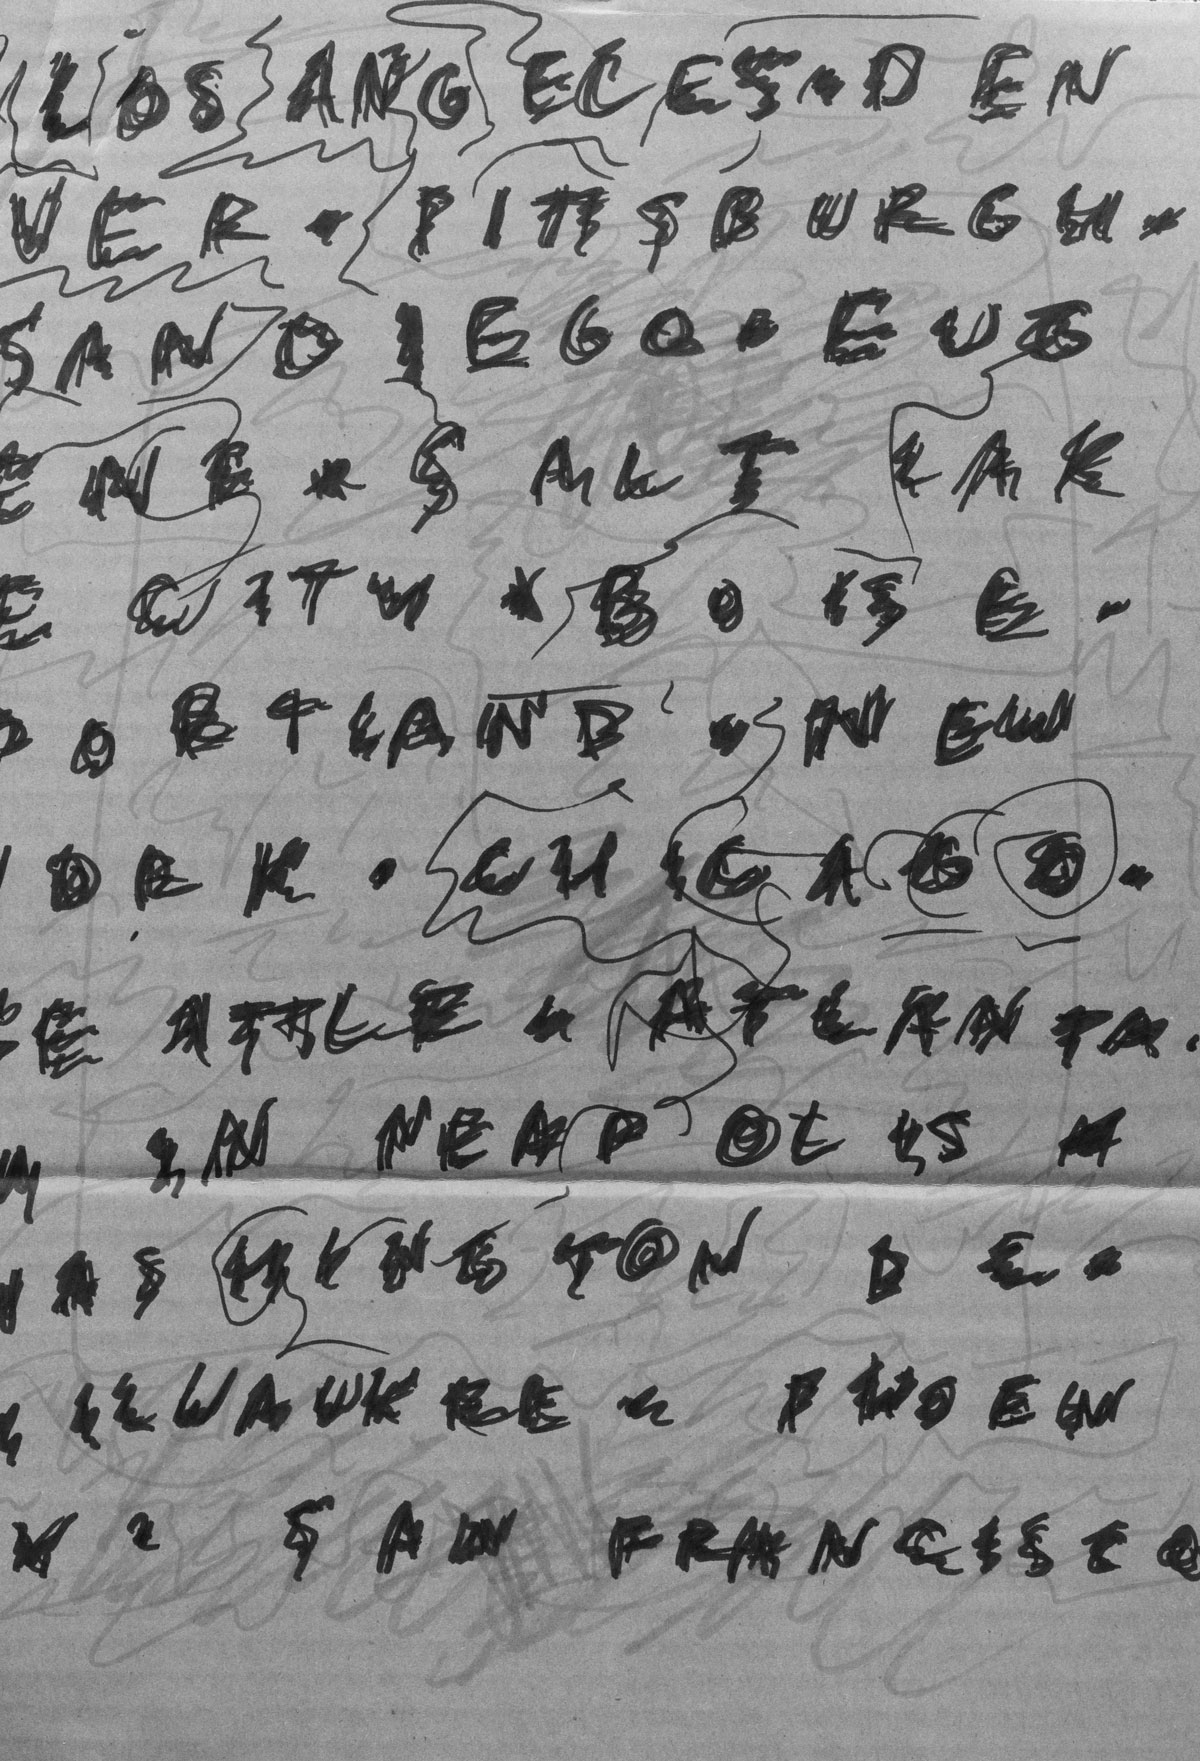 LOS ANGELES • DEN
VER • PITTSBURGH •
SAN DIEGO • EUG
ENE • SALT LAK
E CITY • BOISE •
PORTLAND • NEW
YORK • CHICAGO •
SEATTLE • ATLANTA •
MINNEAPOLIS •
WASHINGTON DC •
MILWAUKEE • PHOEN
IX • SAN FRANCISCO